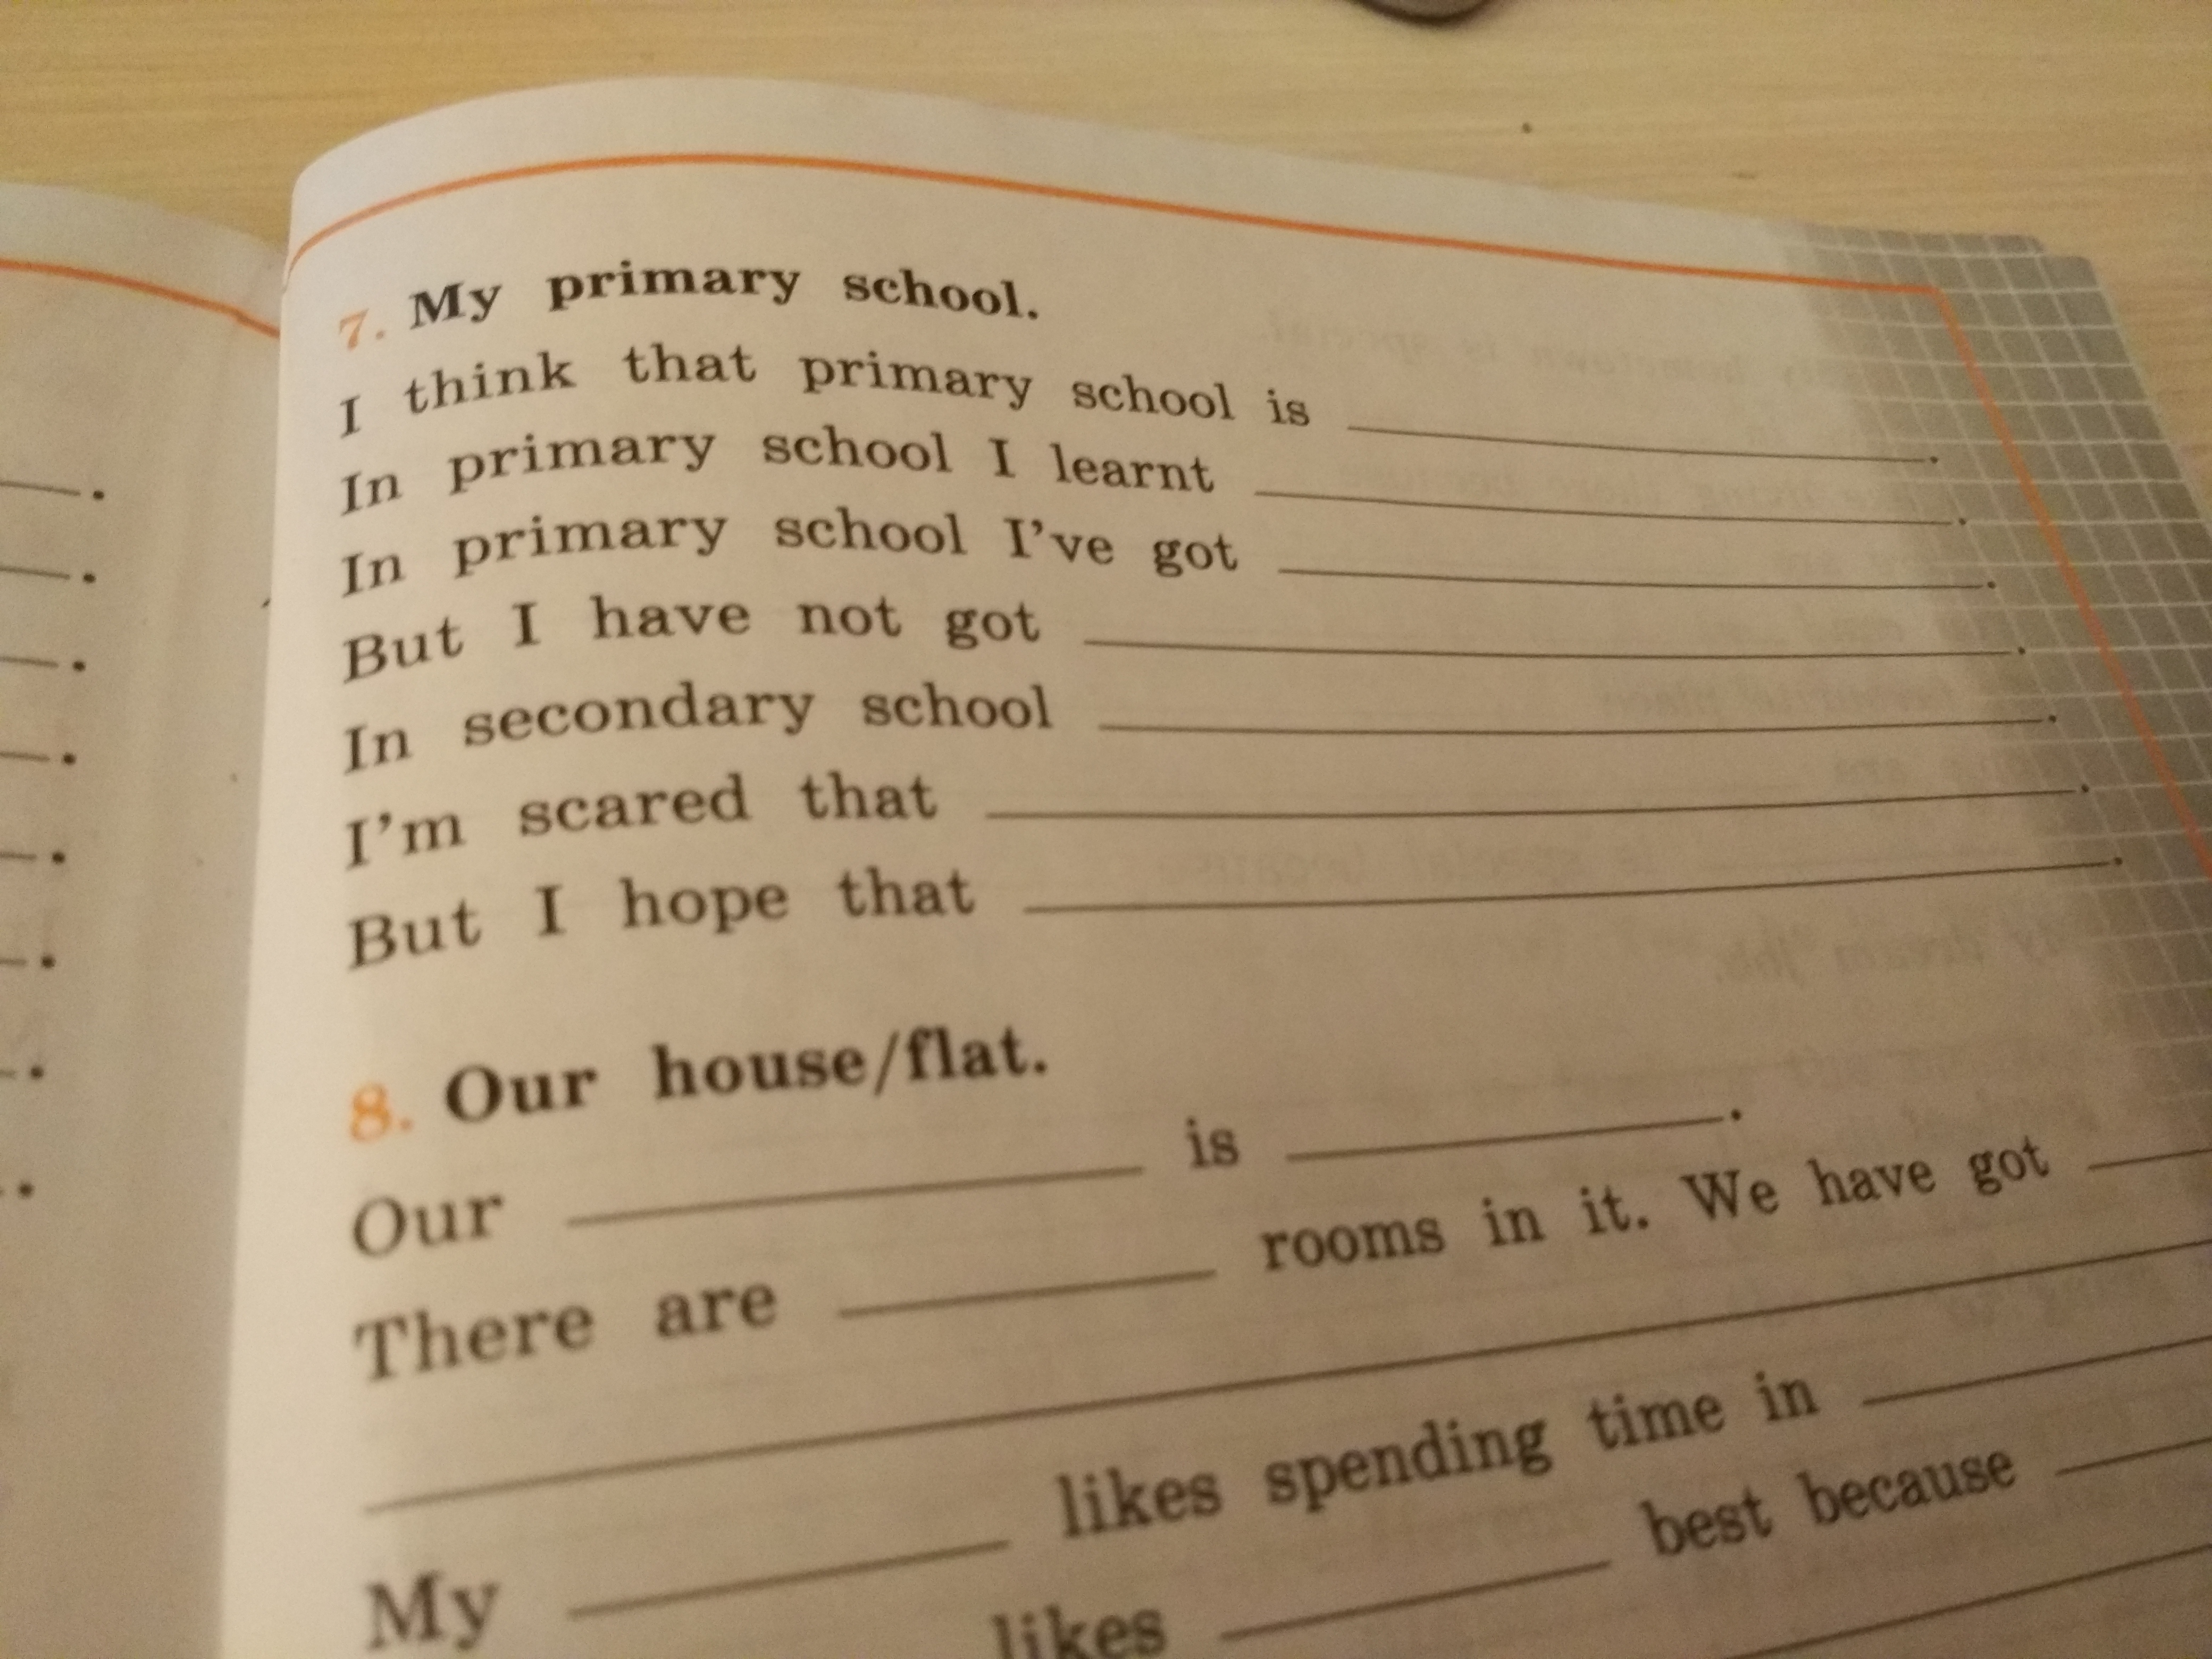 7. My primary school.
I think that primary school is ____________.
In primary school I learnt ____________.
In primary school I've got ____________.
But I have not got ____________.
In secondary school ____________.
I'm scared that ____________.
But I hope that ____________.
8. Our house/flat.
Our ____________ is ____________.
There are ____________ rooms in it. We have got ____________
____________
My ____________ likes spending time in ____________
likes ____________ best because ____________